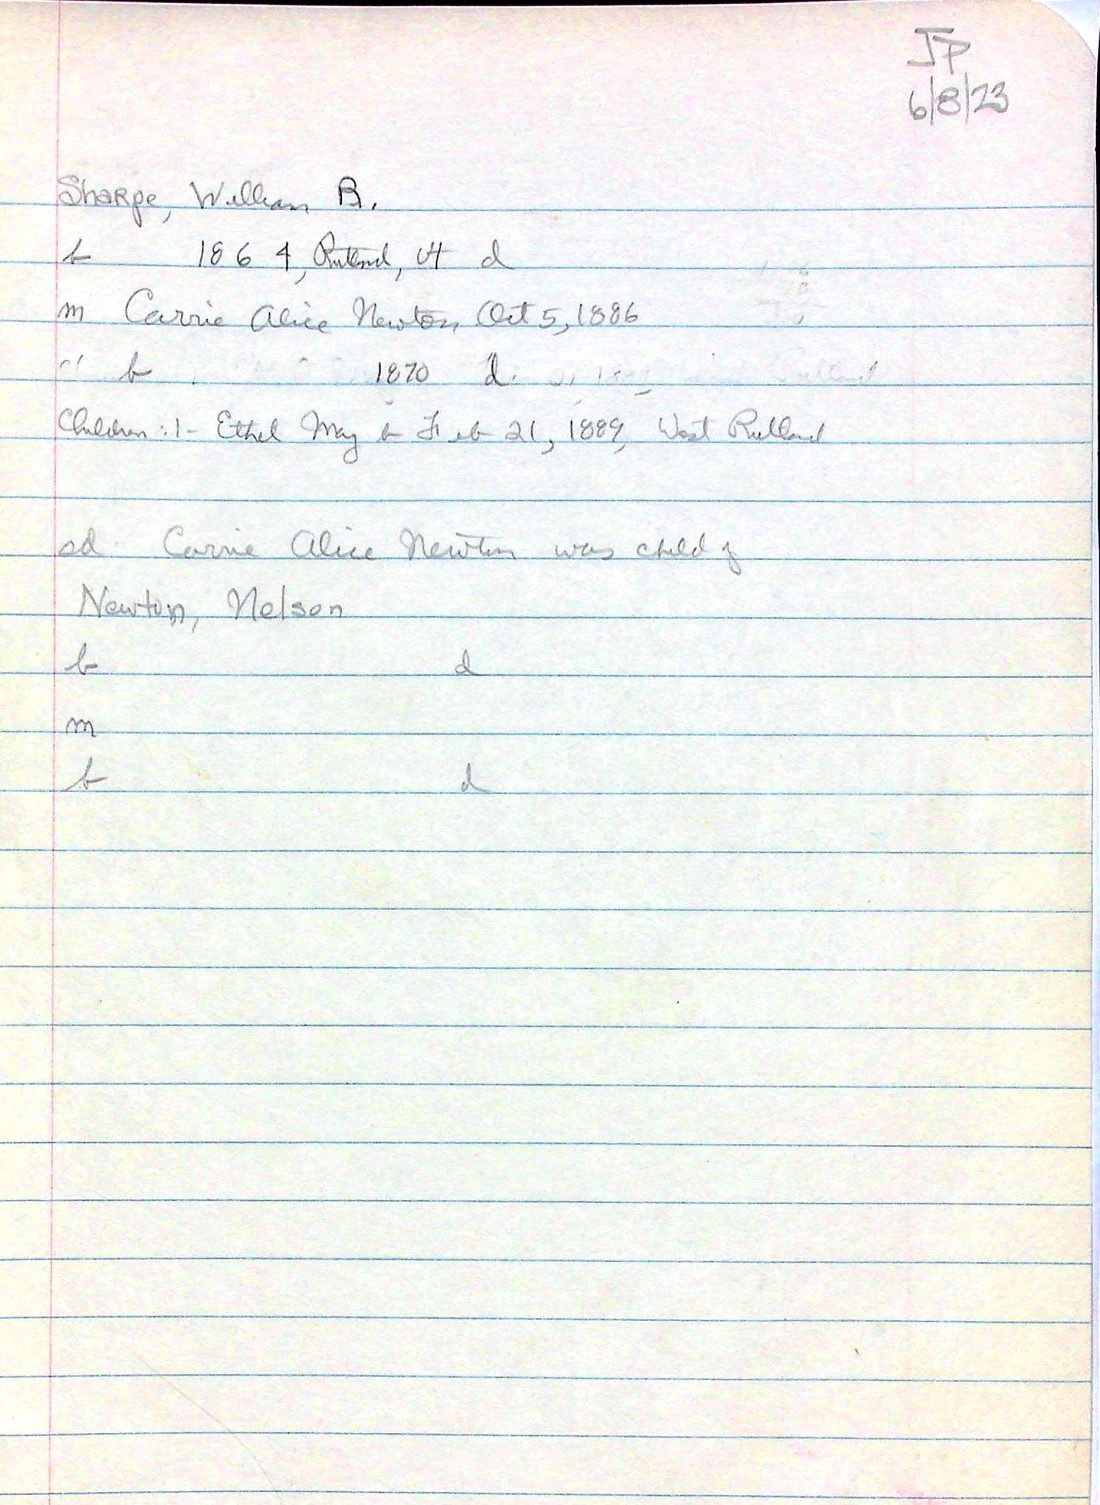 JP
6/8/23
Sharpe, William B.
b 1864, Rutland, Vt d
m Carrie Alice Newton, Oct 5, 1886
b 1870 d.
Children: 1- Ethel May b Feb 21, 1889, West Rutland
sd Carrie Alice Newton was child of
Newton, Nelson
b d
m
b d